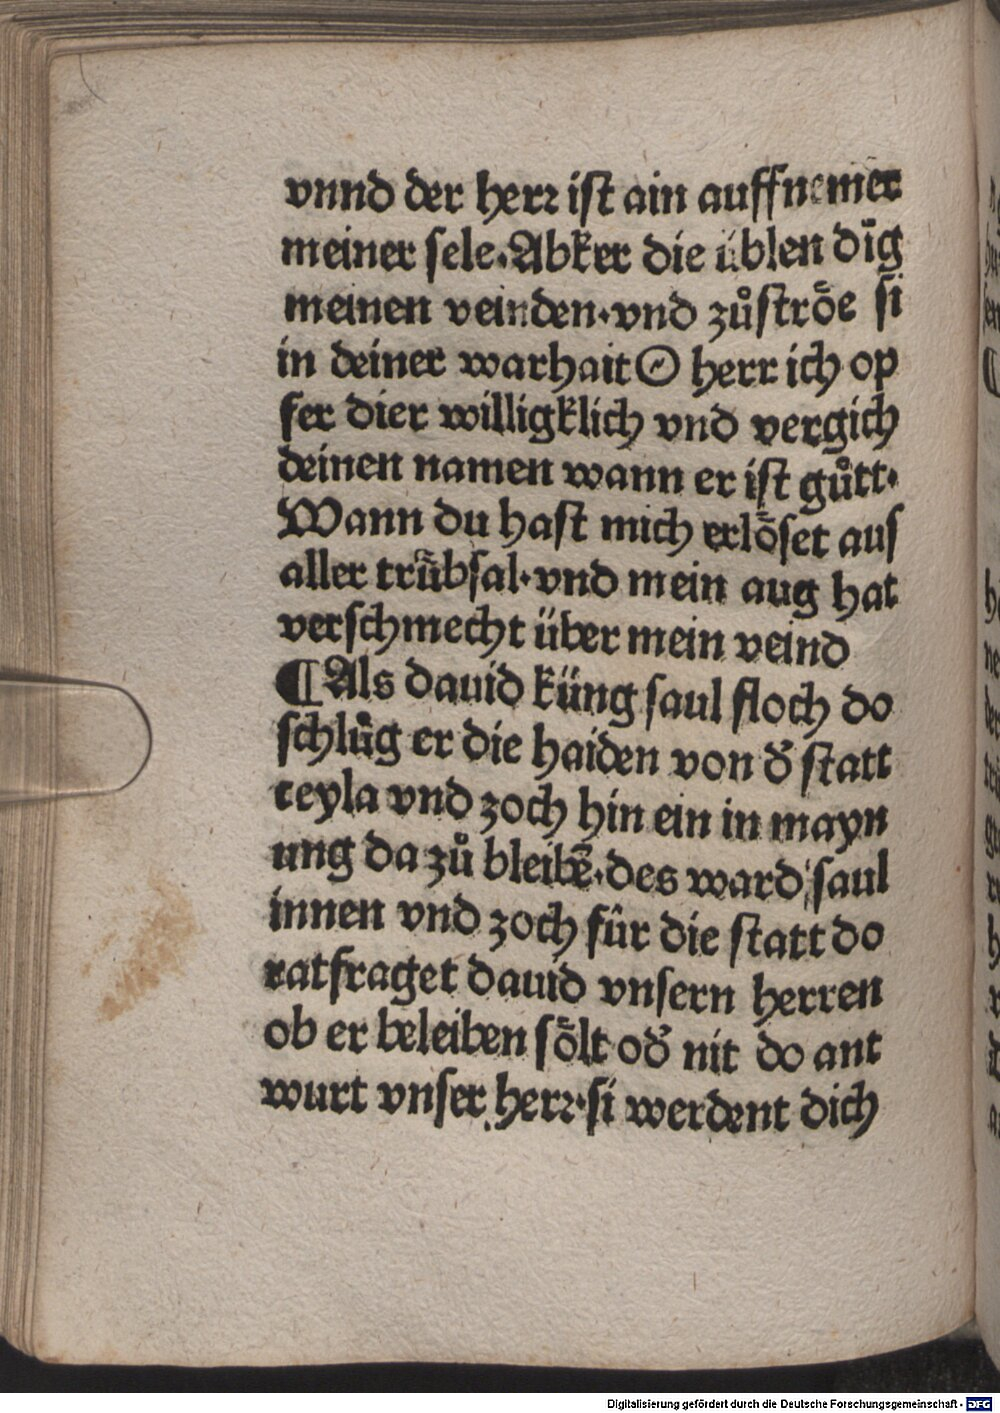 vnnd der herꝛ ist ain auffnemer
meiner sele. Abker die üblen dīg
meinen veinden. vnd zůströ̈e si
in deiner warhait O herr ich op
fer dier willigklich vnd vergich
deinen namen wann er ist gůtt.
Wann du hast mich erlöset aus
aller trübsal. vnd mein aug hat
verschmecht über mein veind
¶ Als dauid küng saul floch do
schlůg er die haiden von d̓ statt
ceyla vnd zoch hin ein in mayn
ung da zů bleibē. des ward saul
innen vnd zoch für die statt do
ratfraget dauid vnsern herren
ob er beleiben sölt od̓ nit do ant
wurt vnser herꝛ. si werdent dich
Digitalisierung gefördert durch die Deutsche Forschungsgemeinschaft - DFG